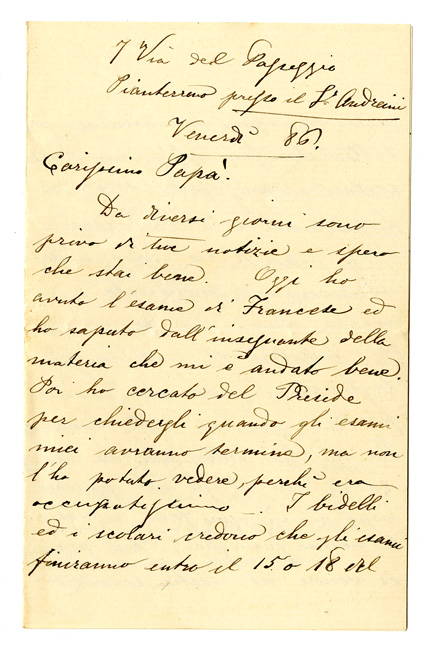 7 Via del Passeggio
Pianterreno presso il Sr. Andreini
Venerdì 86.
Carissimo Papà.
Da diversi giorni sono
privo di tue notizie e spero
che stai bene. Oggi ho
avuto l'esame di Francese ed
ho saputo dall'insegnante della
materia che mi è andato bene.
Poi ho cercato del Preside
per chiedergli quando gli esami
miei avranno termine, ma non
l'ho potuto vedere, perchè era
occupatissimo. I bidelli
ed i scolari credono che gli esami
finiranno entro il 15 o 18 del